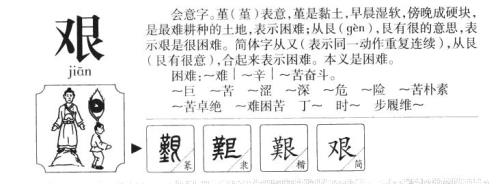 艰
jiān
会意字。堇(堇)表意,堇是黏土,早晨湿软,傍晚成硬块,
是最难耕种的土地,表示困难;从艮(gèn),艮有很的意思,表
示艰是很困难。简体字从又(表示同一动作重复连续),从艮
(艮有很意),合起来表示困难。本义是困难。
困难:~难|~辛|~苦奋斗。
~巨 ~苦 ~涩 ~深 ~危 ~险 ~苦朴素
~苦卓绝 ~难困苦 丁~ 时~ 步履维~
艱 篆
艱 隶
艱 楷
艰 简